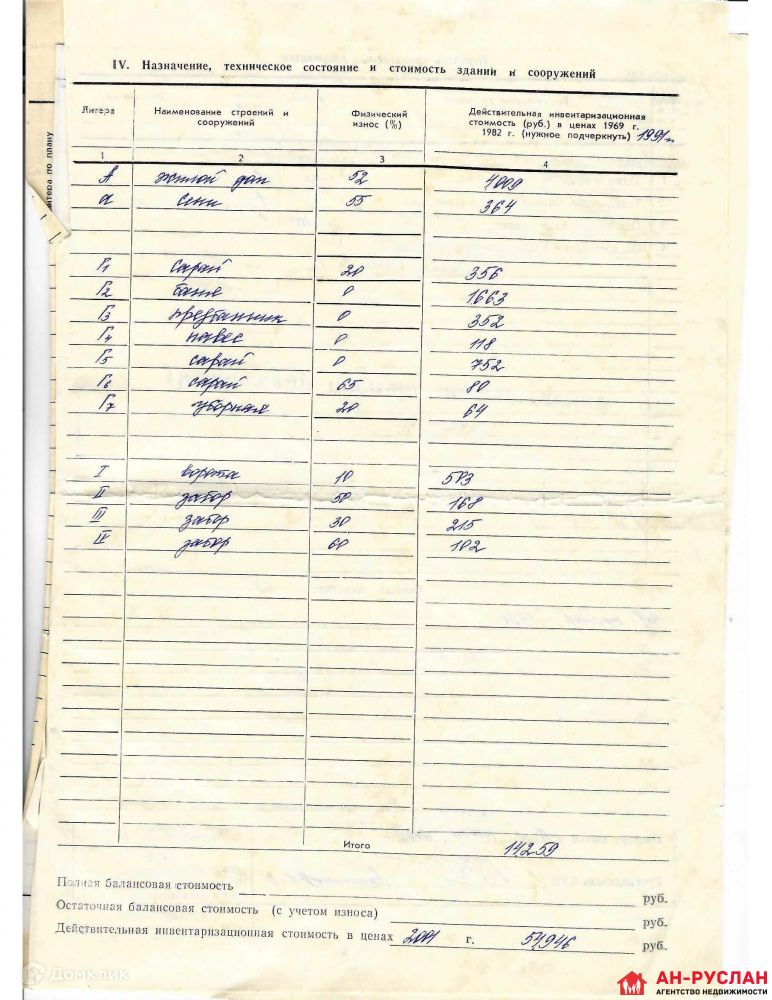 IV. Назначение, техническое состояние и стоимость зданий и сооружений
Литера Наименование строений и сооружений Физический износ (%) Действительная инвентаризационная
стоимость (руб.) в ценах 1969 г.
1982 г. (нужное подчеркнуть) 1991 г.
1 2 3 4
А жилой дом 52
а сени 55 364
Г1 сарай 20 356
Г2 баня 0 1663
Г3 предбанник 0 352
Г4 навес 0 118
Г5 сарай 0 752
Г6 сарай 65 80
Г7 уборная 20 64
I ворота 10 503
II забор 50 168
III забор 30 215
IV забор 60 102
Итого 14259
Полная балансовая стоимость руб.
Остаточная балансовая стоимость (с учетом износа) руб.
Действительная инвентаризационная стоимость в ценах 2001 г. 54946 руб.
итера по плану
Домклик
АН-РУСЛАН
АГЕНТСТВО НЕДВИЖИМОСТИ